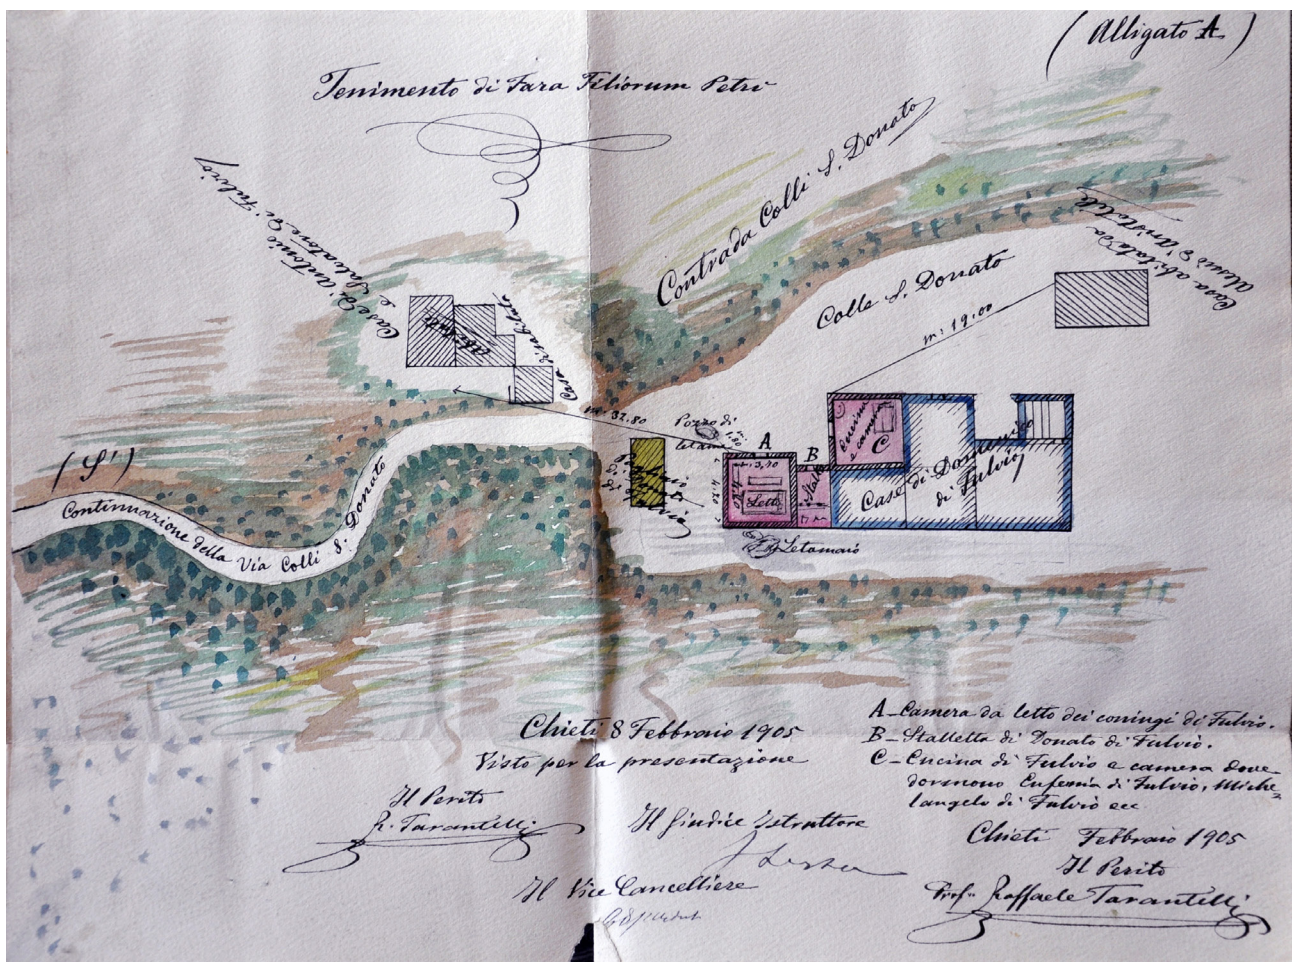 (Alligato A)
Tenimento di Fara Filiorum Petri
Contrada Colli S. Donato
Colle S. Donato
Case di Antonio
e Salvatore di Fulvio
Casa disabitata
Casa abitata da
m: 19.00
m: 32.80
Pozzo di
letame
m. 1.80
A
B
C
Cucina
e camera
Stalla
Letto
3,70
4.20
4.80
Case di Domenico
di Fulvio
Letamaio
(S')
Continuazione della Via Colli S. Donato
Chieti 8 Febbraio 1905
Visto per la presentazione
Il Perito
R. Tarantelli
Il Giudice Istruttore
Il Vice Cancelliere
A_Camera da letto dei coniugi di Fulvio.
B_Stalletta di Donato di Fulvio.
C_Cucina di Fulvio e camera dove
dormono Eufemia di Fulvio, Miche
langelo di Fulvio ecc.
Chieti Febbraio 1905
Il Perito
Prof. Raffaele Tarantelli